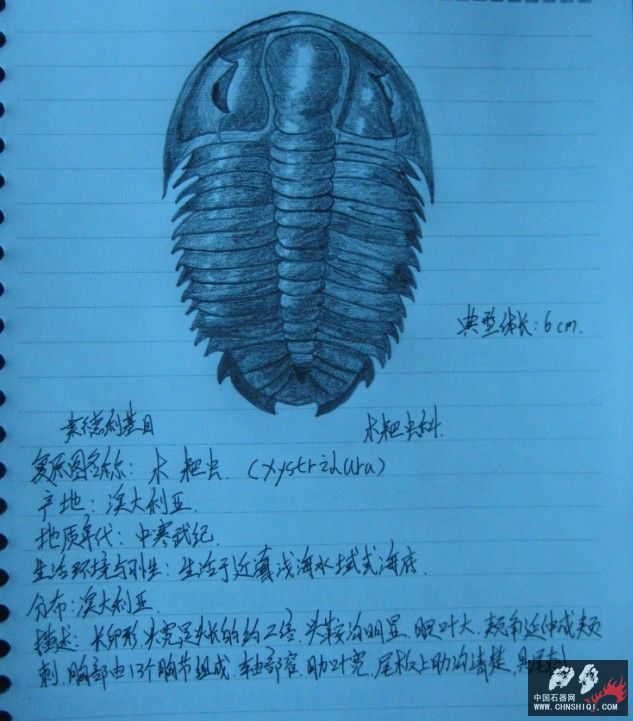 典型体长:6cm.
莱德利基目 木耙虫科.
复原图名称: 木耙虫. (Xystridura)
产地: 澳大利亚.
地质年代: 中寒武纪.
生活环境与习性: 生活于近岸浅海水域或海底.
分布:澳大利亚.
描述: 长卵形.头宽是头长的约2倍.头鞍沟明显.眼叶大.颊角延伸成颊
刺.胸部由13个胸节组成.轴部窄.肋叶宽.尾板上肋沟清楚.具尾刺.
中国石器网
WWW.CHNSHIQI.COM